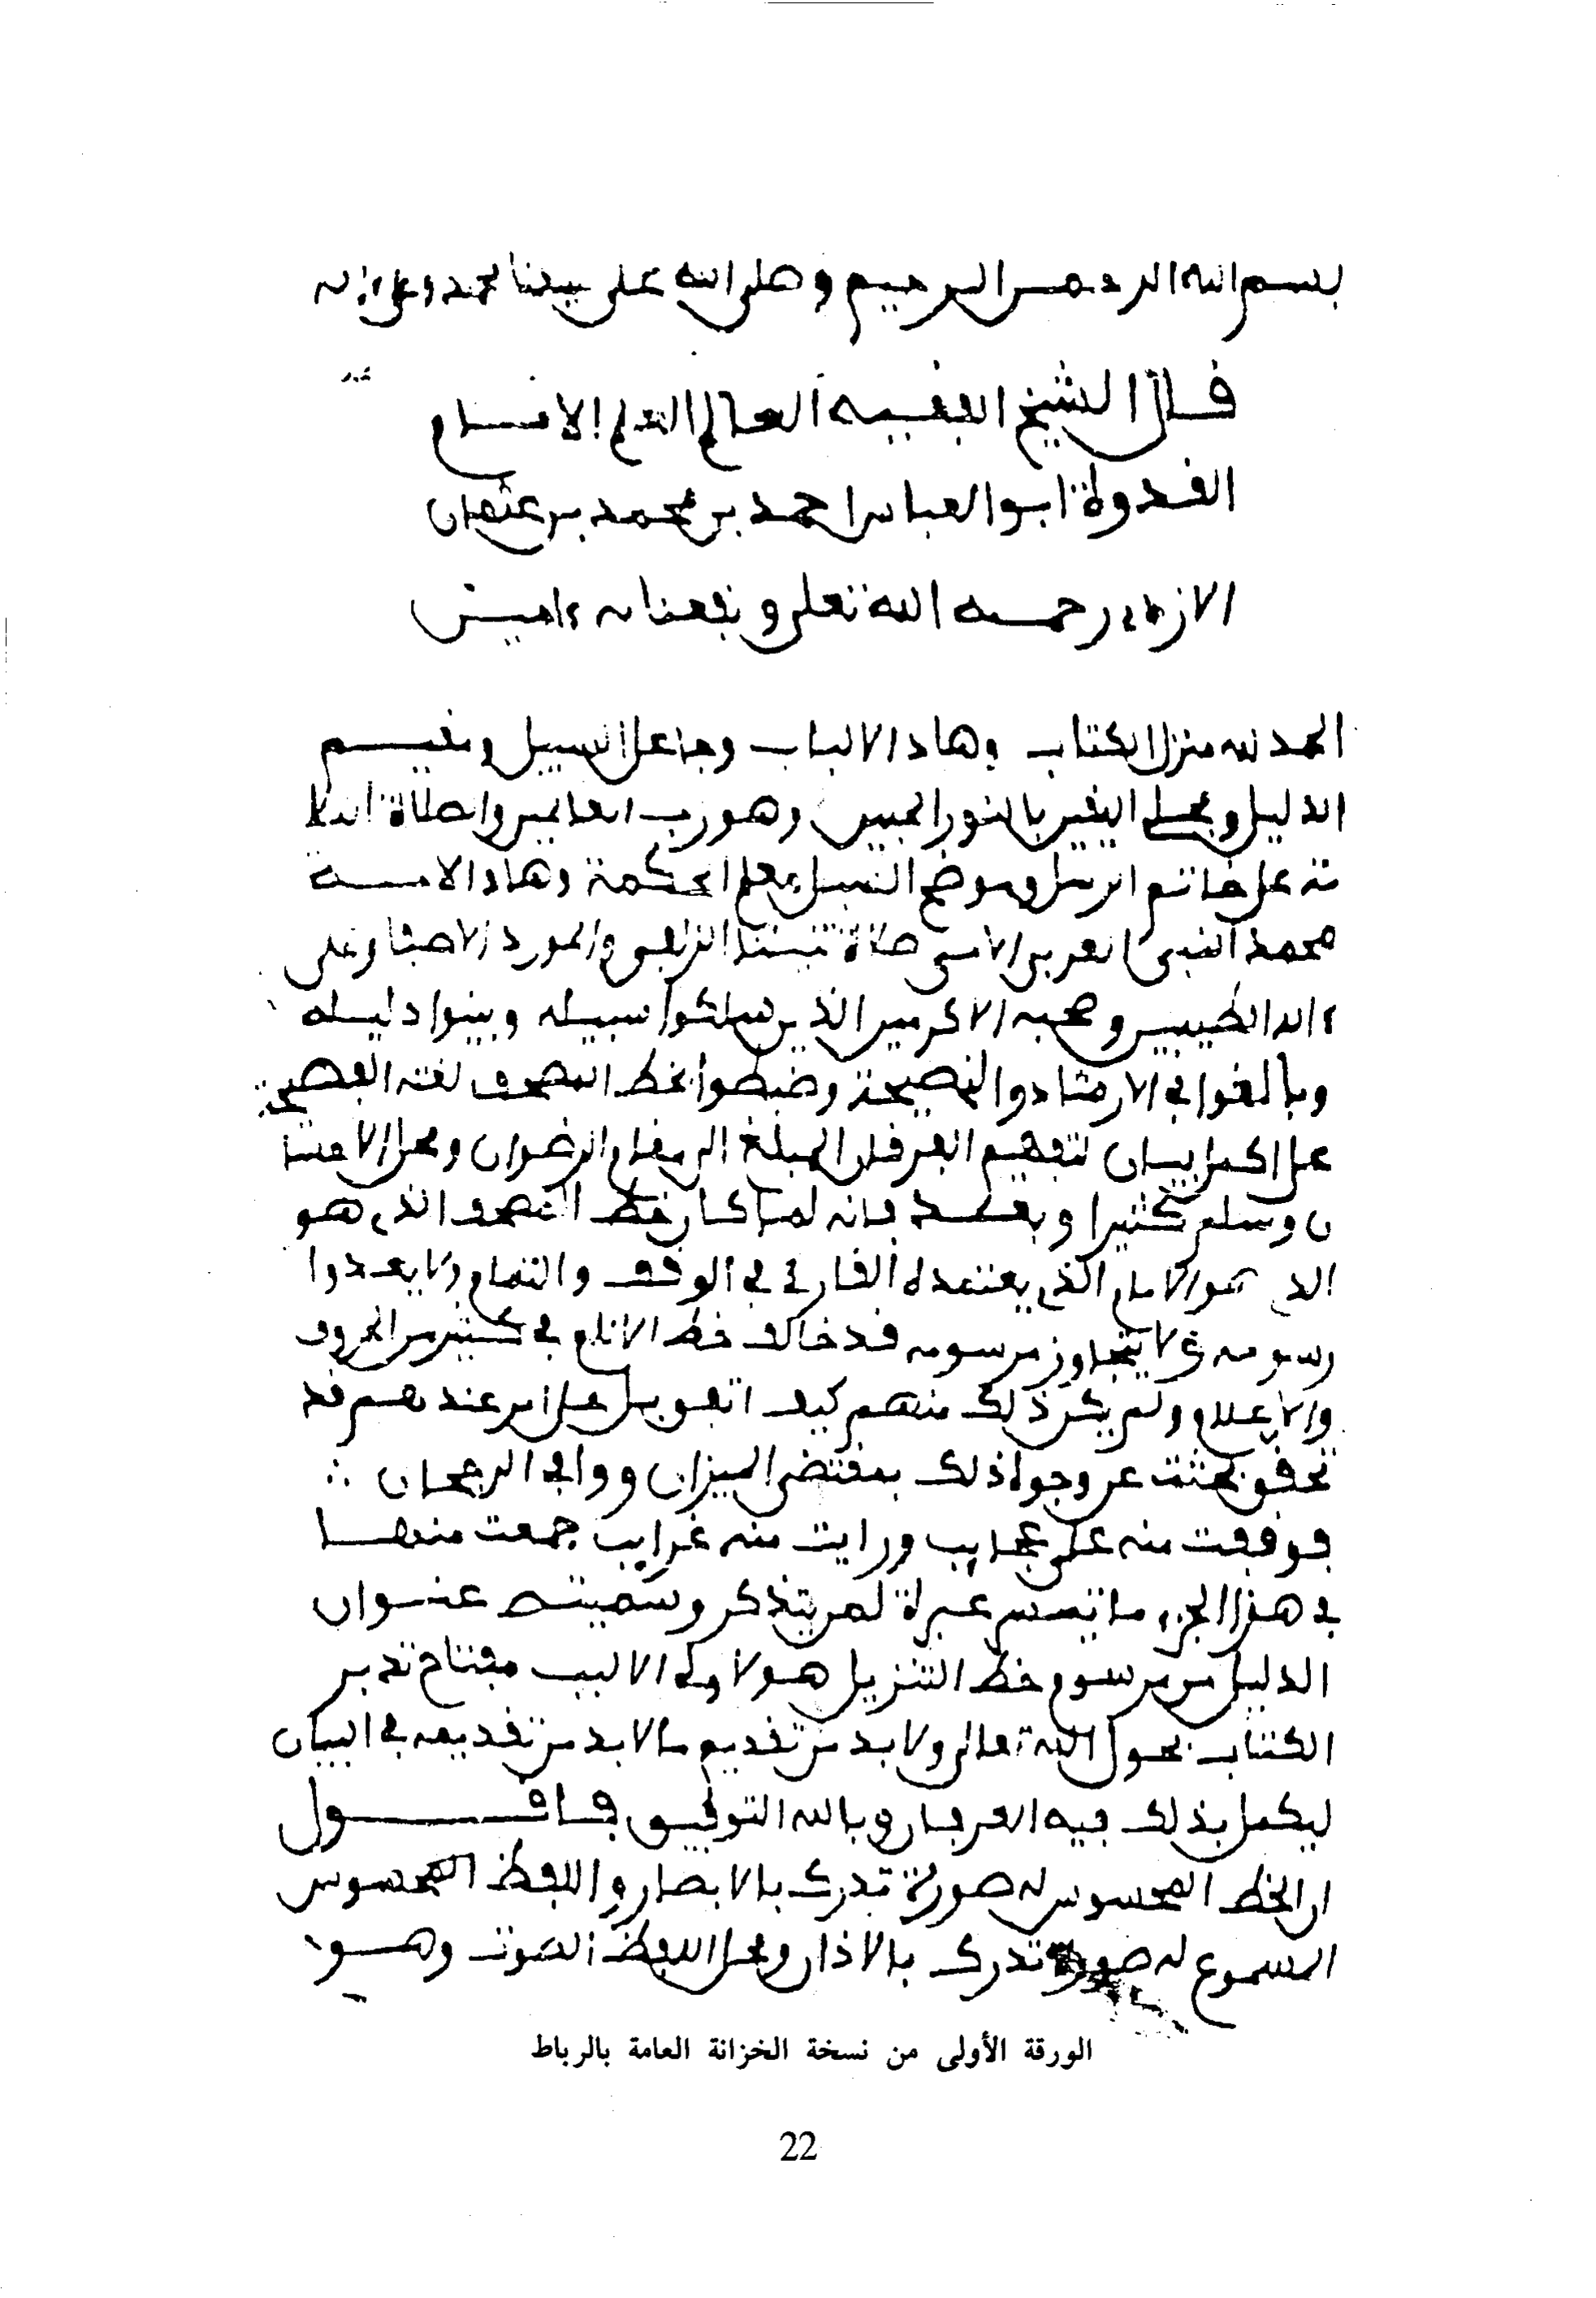 بسم الله الرحمن الرحيم وصلى الله على سيدنا محمد وعلى ءاله
قال الشيخ الفقيه العالم العلم الامام
القدوة ابو العباس احمد بن محمد بن عثمان
الازدي رحمه الله تعلى ونفعنا به ءامين
الحمد لله منزل الكتاب وهاد الالباب وجاعل السبيل ومقيم
الدليل ومجلي اليقين بالنور المبين وهو رب العالمين والصلاة الدا
ئمة على خاتم الرسل وموضح السبل معلم الحكمة وهاد الامة
محمد النبي العربي الامي صلاة الزلفى والمورد الاصفا وعلى
ءاله الطيبين وصحبه الاكرمين الذين سلكوا سبيله وبينوا دليله
وبالغوا في الارشاد والنصيحة وضبطوا بخط المصحف لغته الفصيحة
على اكمل بيان لتفهيم الفرقان المبلغ الى مقام الرضوان ومحل الامتنا
ن وسلم كثيرا وبعد فانه لما كان خط المصحف الذي هو
الذي هو الامام الذي يعتمده القارئ في الوقف والتمام ولا يعدوا
رسومه ولا يتجاوز مرسومه قد خالف خط الانام في كثير من الحروف
والاعلام ولم يكن ذلك منهم كيف اتفق بل على امر عندهم قد
تحقق بحثت عن وجوه ذلك بمقتضى الميزان ووافي الرجحان
فوقفت منه على عجايب ورايت منه غرايب جمعت منها
في هذا الجزء ما تيسر عبرة لمن يتذكر وسميته عنوان
الدليل من مرسوم خط التنزيل هو لاولي الالبب مفتاح تدبر
الكتاب بحول الله تعالى ولا بد من تقديم ما لا بد من تقديمه في البيان
ليكمل بذلك فيه العرفان وبالله التوفيق فاقول
ان الخط المحسوس له صورة تدرك بالابصار واللفظ المحسوس
المسموع له صورة تدرك بالاذان ومحل اللفظ الصوت وهو
الورقة الأولى من نسخة الخزانة العامة بالرباط
22